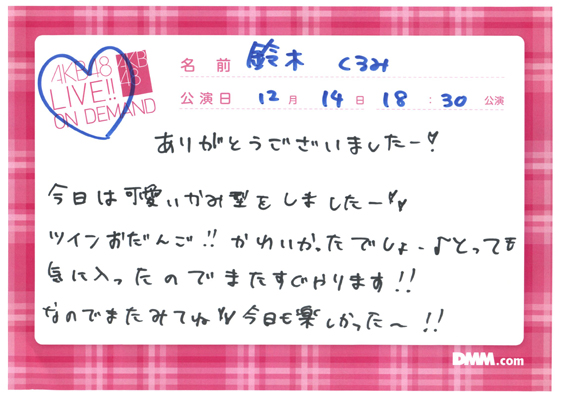 AKB48
LIVE!!
ON DEMAND
AKB
48
名 前 鈴木 くるみ
公演日 12 月 14 日 18 : 30 公演
ありがとうございましたー♥!
今日は可愛いかみ型をしましたー♥♥
ツインおだんご!! かわいかったでしょ-♪とっても
気に入ったのでまたすぐやります!!
なのでまたみてね♥♥今日も楽しかった〜!!
DMM.com